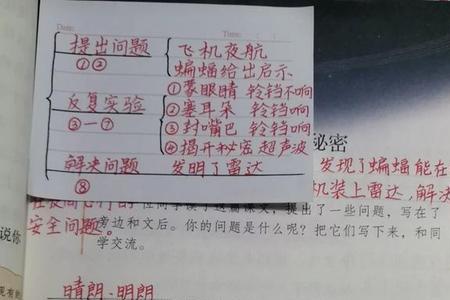 Date: Time:
提出问题
①②
飞机夜航
蝙蝠给出启示
反复实验
③一⑦
①蒙眼睛 铃铛不响
②塞耳朵 铃铛响
③封嘴巴 铃铛响
④揭开秘密 超声波
解决问题
⑧
发明了雷达
秘密
发现了蝙蝠能在
机装上雷达,解决
安全问题。
位同学读了这篇课文,提出了一些问题,写在了
旁边和文后。你的问题是什么呢?把它们写下来,和同
学交流。
说你
晴朗·明朗